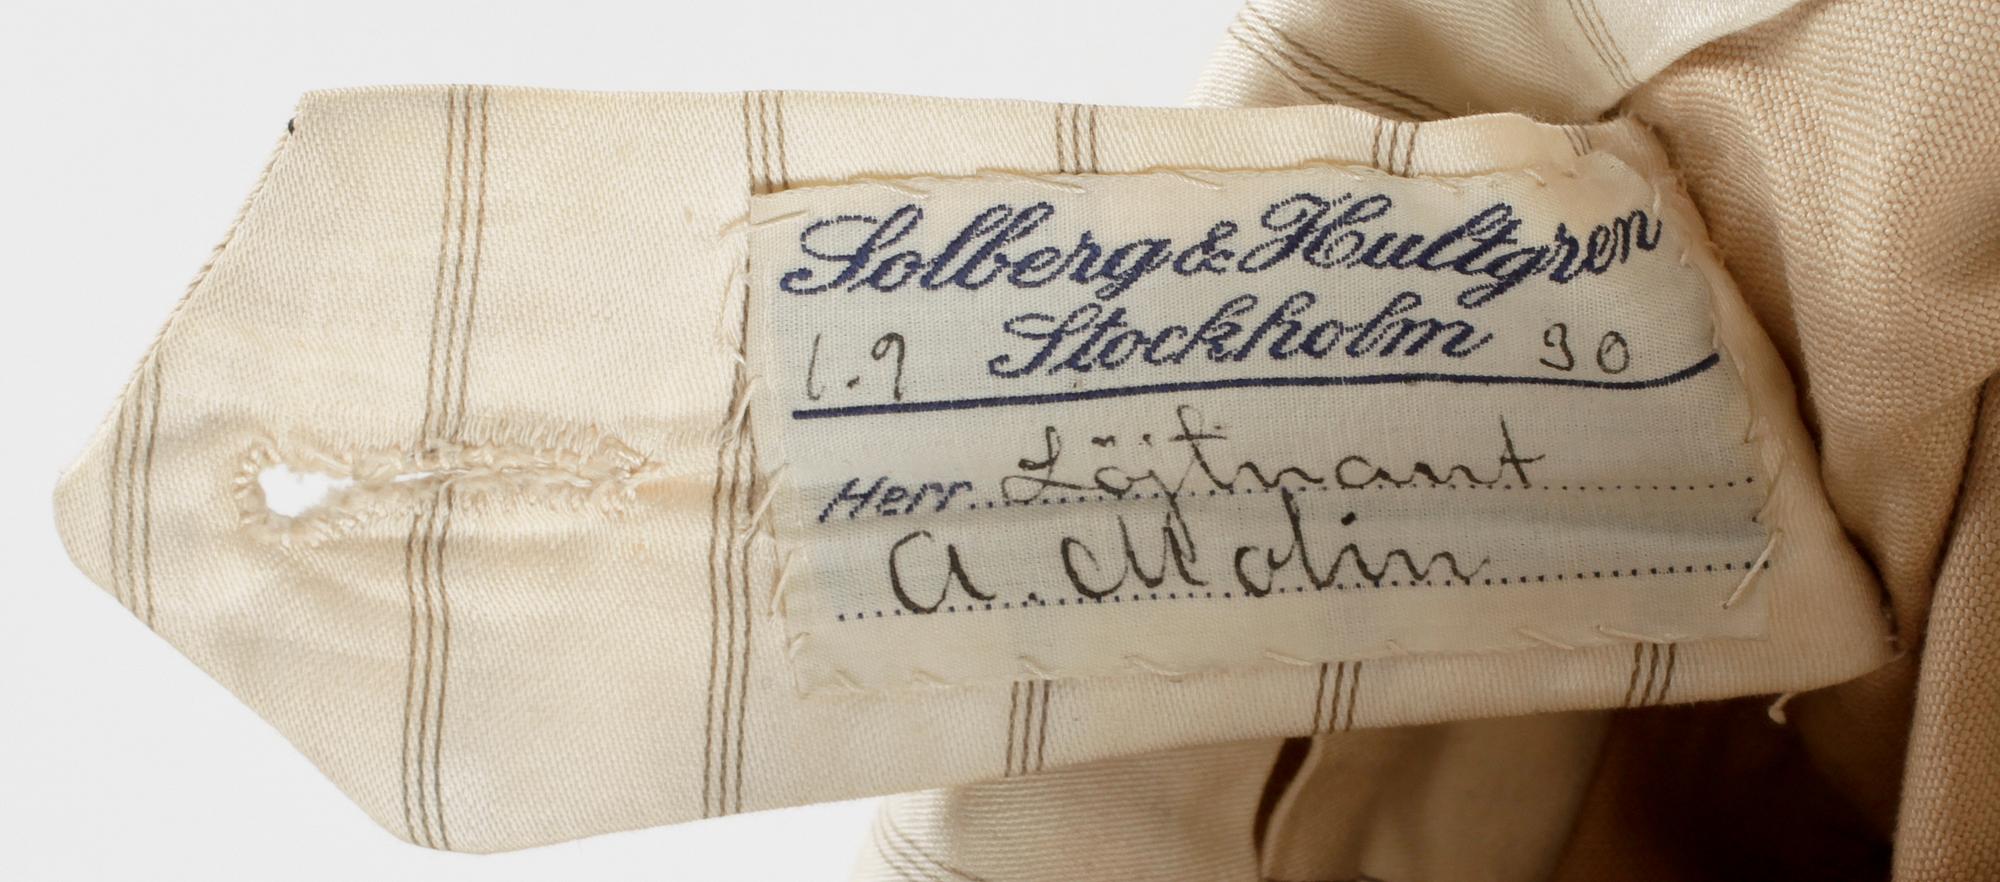 Solberg & Hultgren
Stockholm
1.9 30
Herr Löjtnant
A. Molin